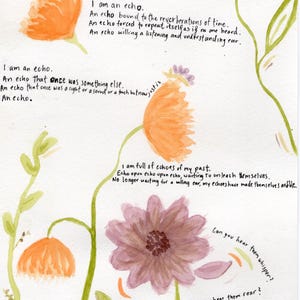 I am an echo.
An echo bound to the reverberations of time.
An echo forced to repeat itself as if no one heard.
An echo willing a listening and understanding ear.
I am an echo.
An echo That once was something else.
An echo that once was a sight or a sound or a touch but now
An echo.
I am full of echoes of my past.
Echo upon echo upon echo, waiting to unleash themselves.
No longer waiting for a willing ear, my echoes have made themselves
Can you hear them whisper?
hear them roar?